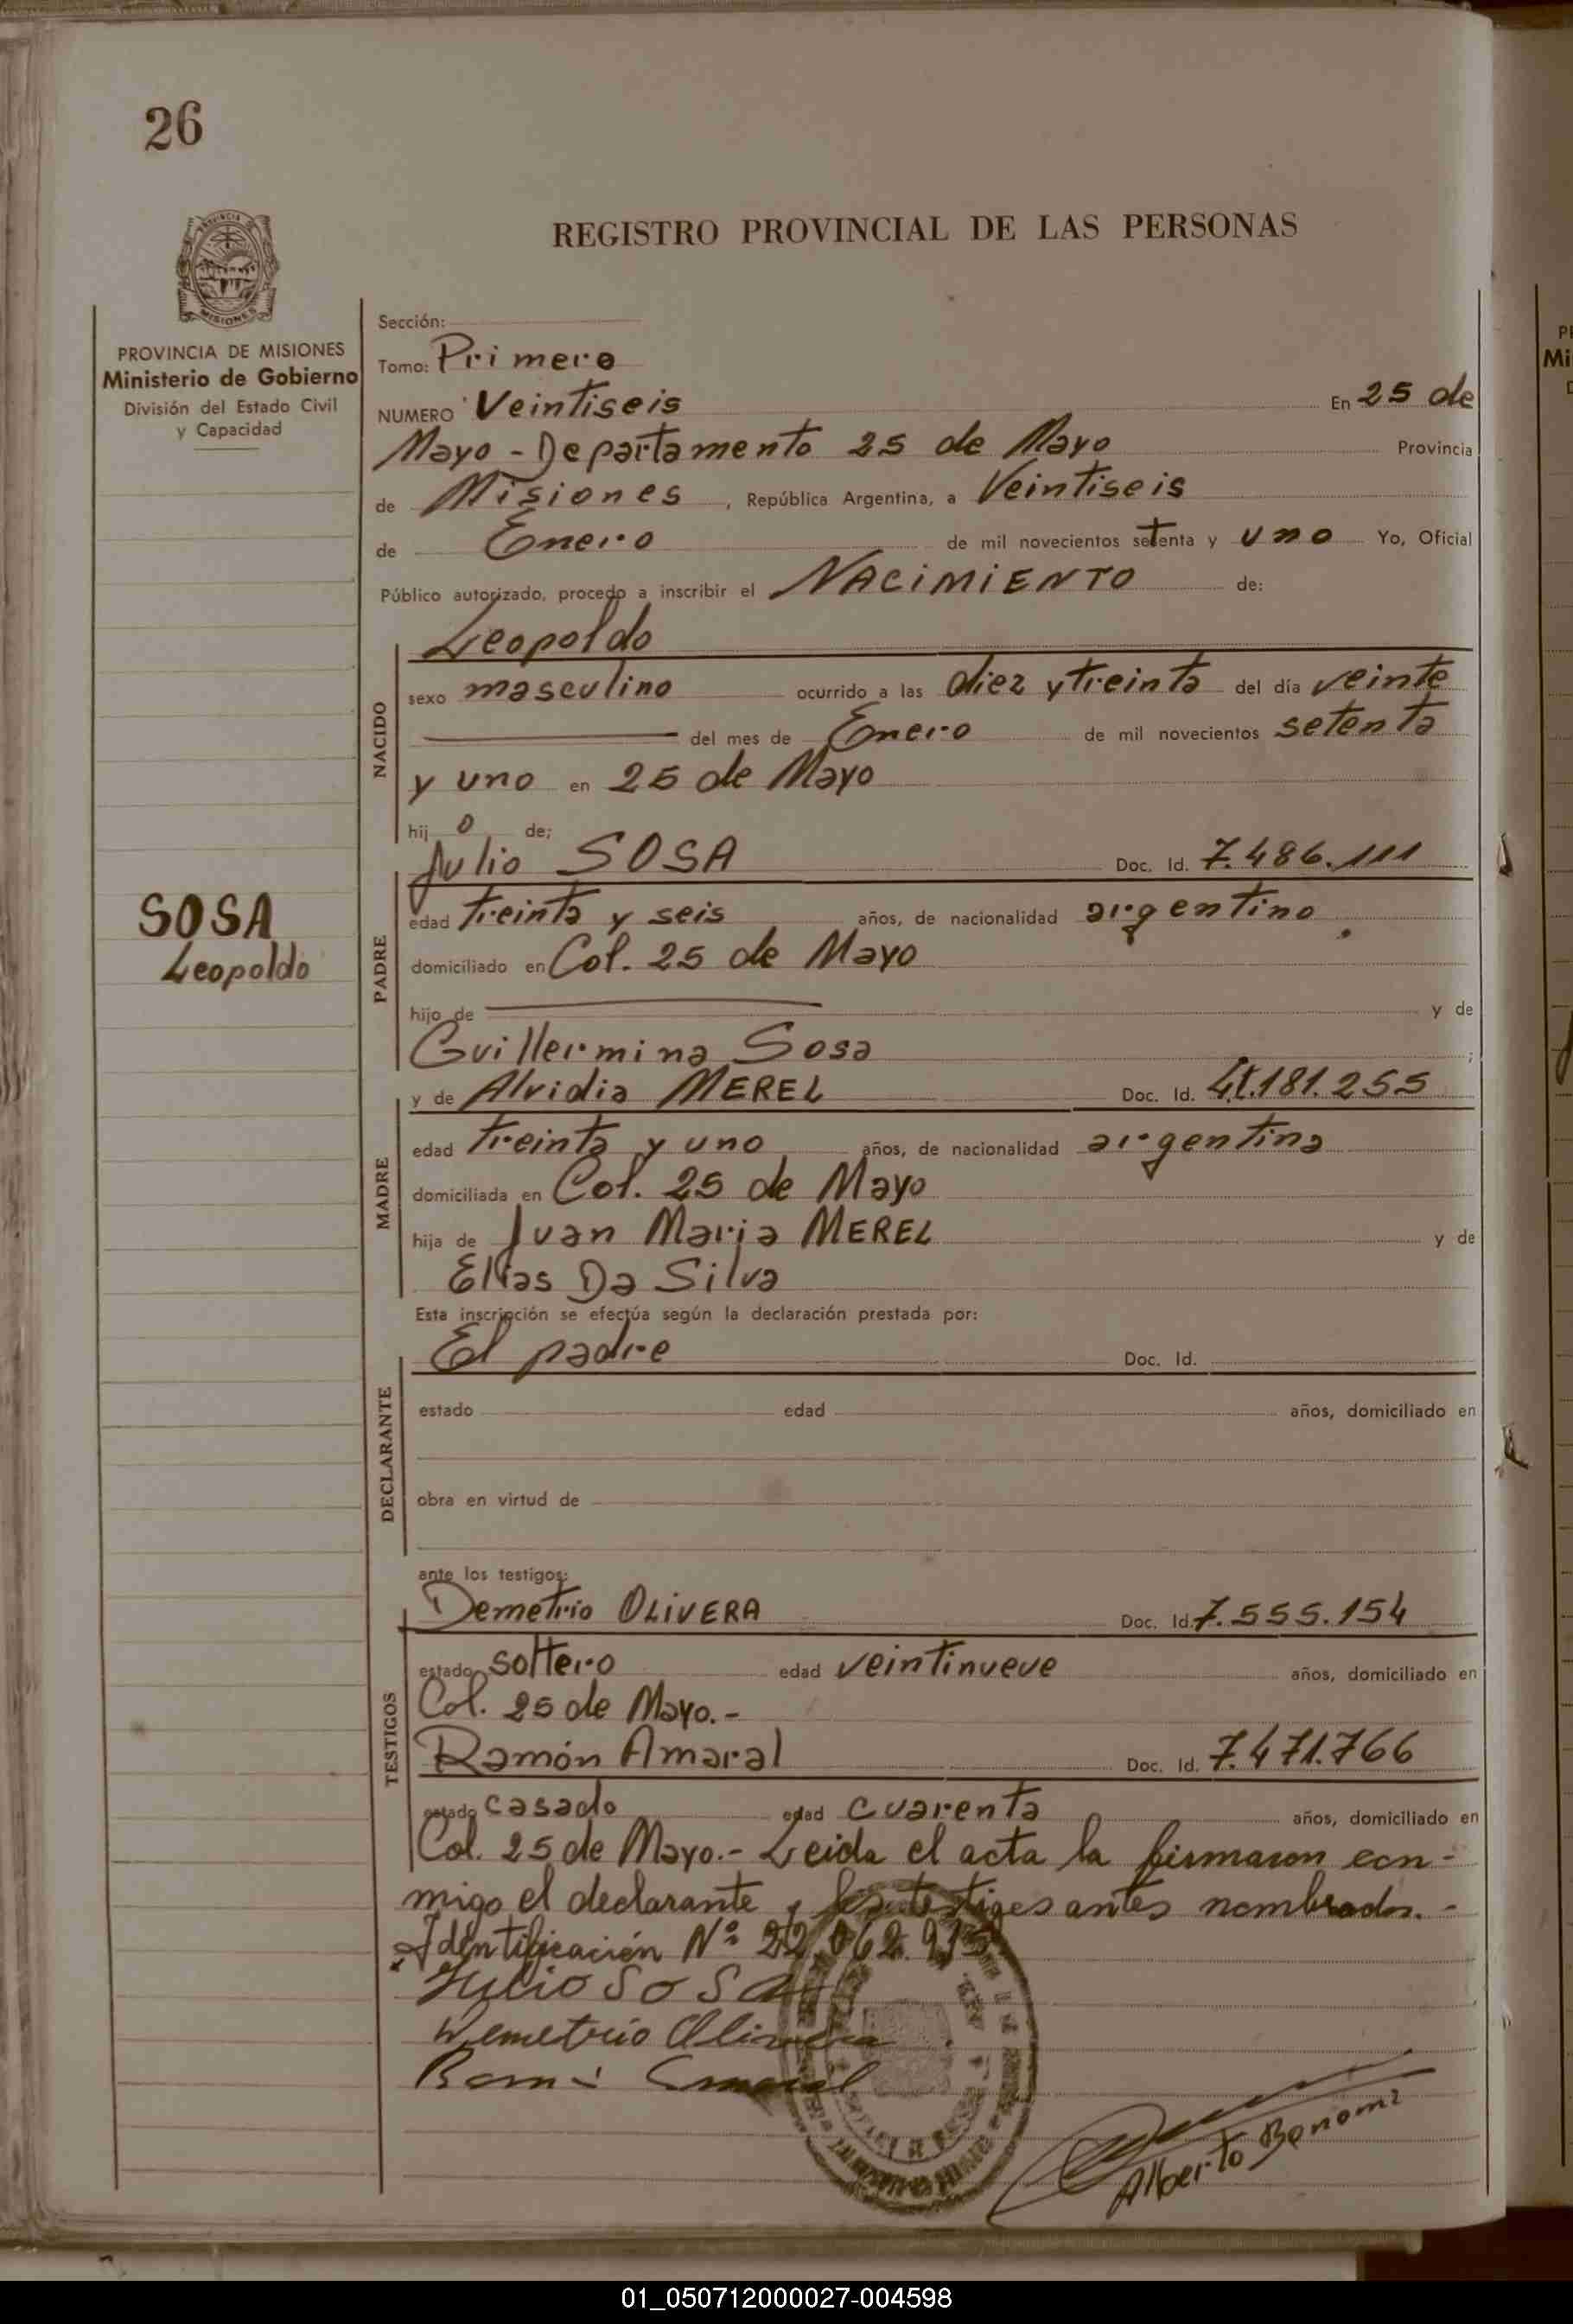 26
REGISTRO PROVINCIAL DE LAS PERSONAS
PROVINCIA DE MISIONES
Ministerio de Gobierno
División del Estado Civil
y Capacidad
Sección:
Tomo: Primero
NUMERO Veintiseis En 25 de
Mayo - Departamento 25 de Mayo Provincia
de Misiones, República Argentina, a Veintiseis
de Enero de mil novecientos setenta y uno Yo, Oficial
Público autorizado, procedo a inscribir el NACIMIENTO de:
NACIDO
Leopoldo
sexo masculino ocurrido a las diez y treinta del día veinte
del mes de Enero de mil novecientos setenta
y uno en 25 de Mayo
hij o de;
SOSA
Leopoldo
PADRE
Julio SOSA Doc. Id. 7.486.111
edad treinta y seis años, de nacionalidad argentino
domiciliado en Col. 25 de Mayo
hijo de y de
Guillermina Sosa ;
MADRE
y de Alvidia MEREL Doc. Id. 181.255
edad treinta y uno años, de nacionalidad argentina
domiciliada en Col. 25 de Mayo
hija de Juan Maria MEREL y de
Elias Da Silva
Esta inscripción se efectúa según la declaración prestada por:
DECLARANTE
El padre Doc. Id.
estado edad años, domiciliado en
obra en virtud de
ante los testigos:
TESTIGOS
Demetrio OLIVERA Doc. Id. 7.555.154
estado soltero edad veintinueve años, domiciliado en
Col. 25 de Mayo.-
Ramón Amaral Doc. Id. 7.471.766
estado casado edad cuarenta años, domiciliado en
Col. 25 de Mayo.- Leida el acta la firmaron con-
migo el declarante y los testigos antes nombrados.-
Identificación Nº 22.062.915
Julio SOSA
Demetrio Olivera
Alberto Benomi
01_050712000027-004598